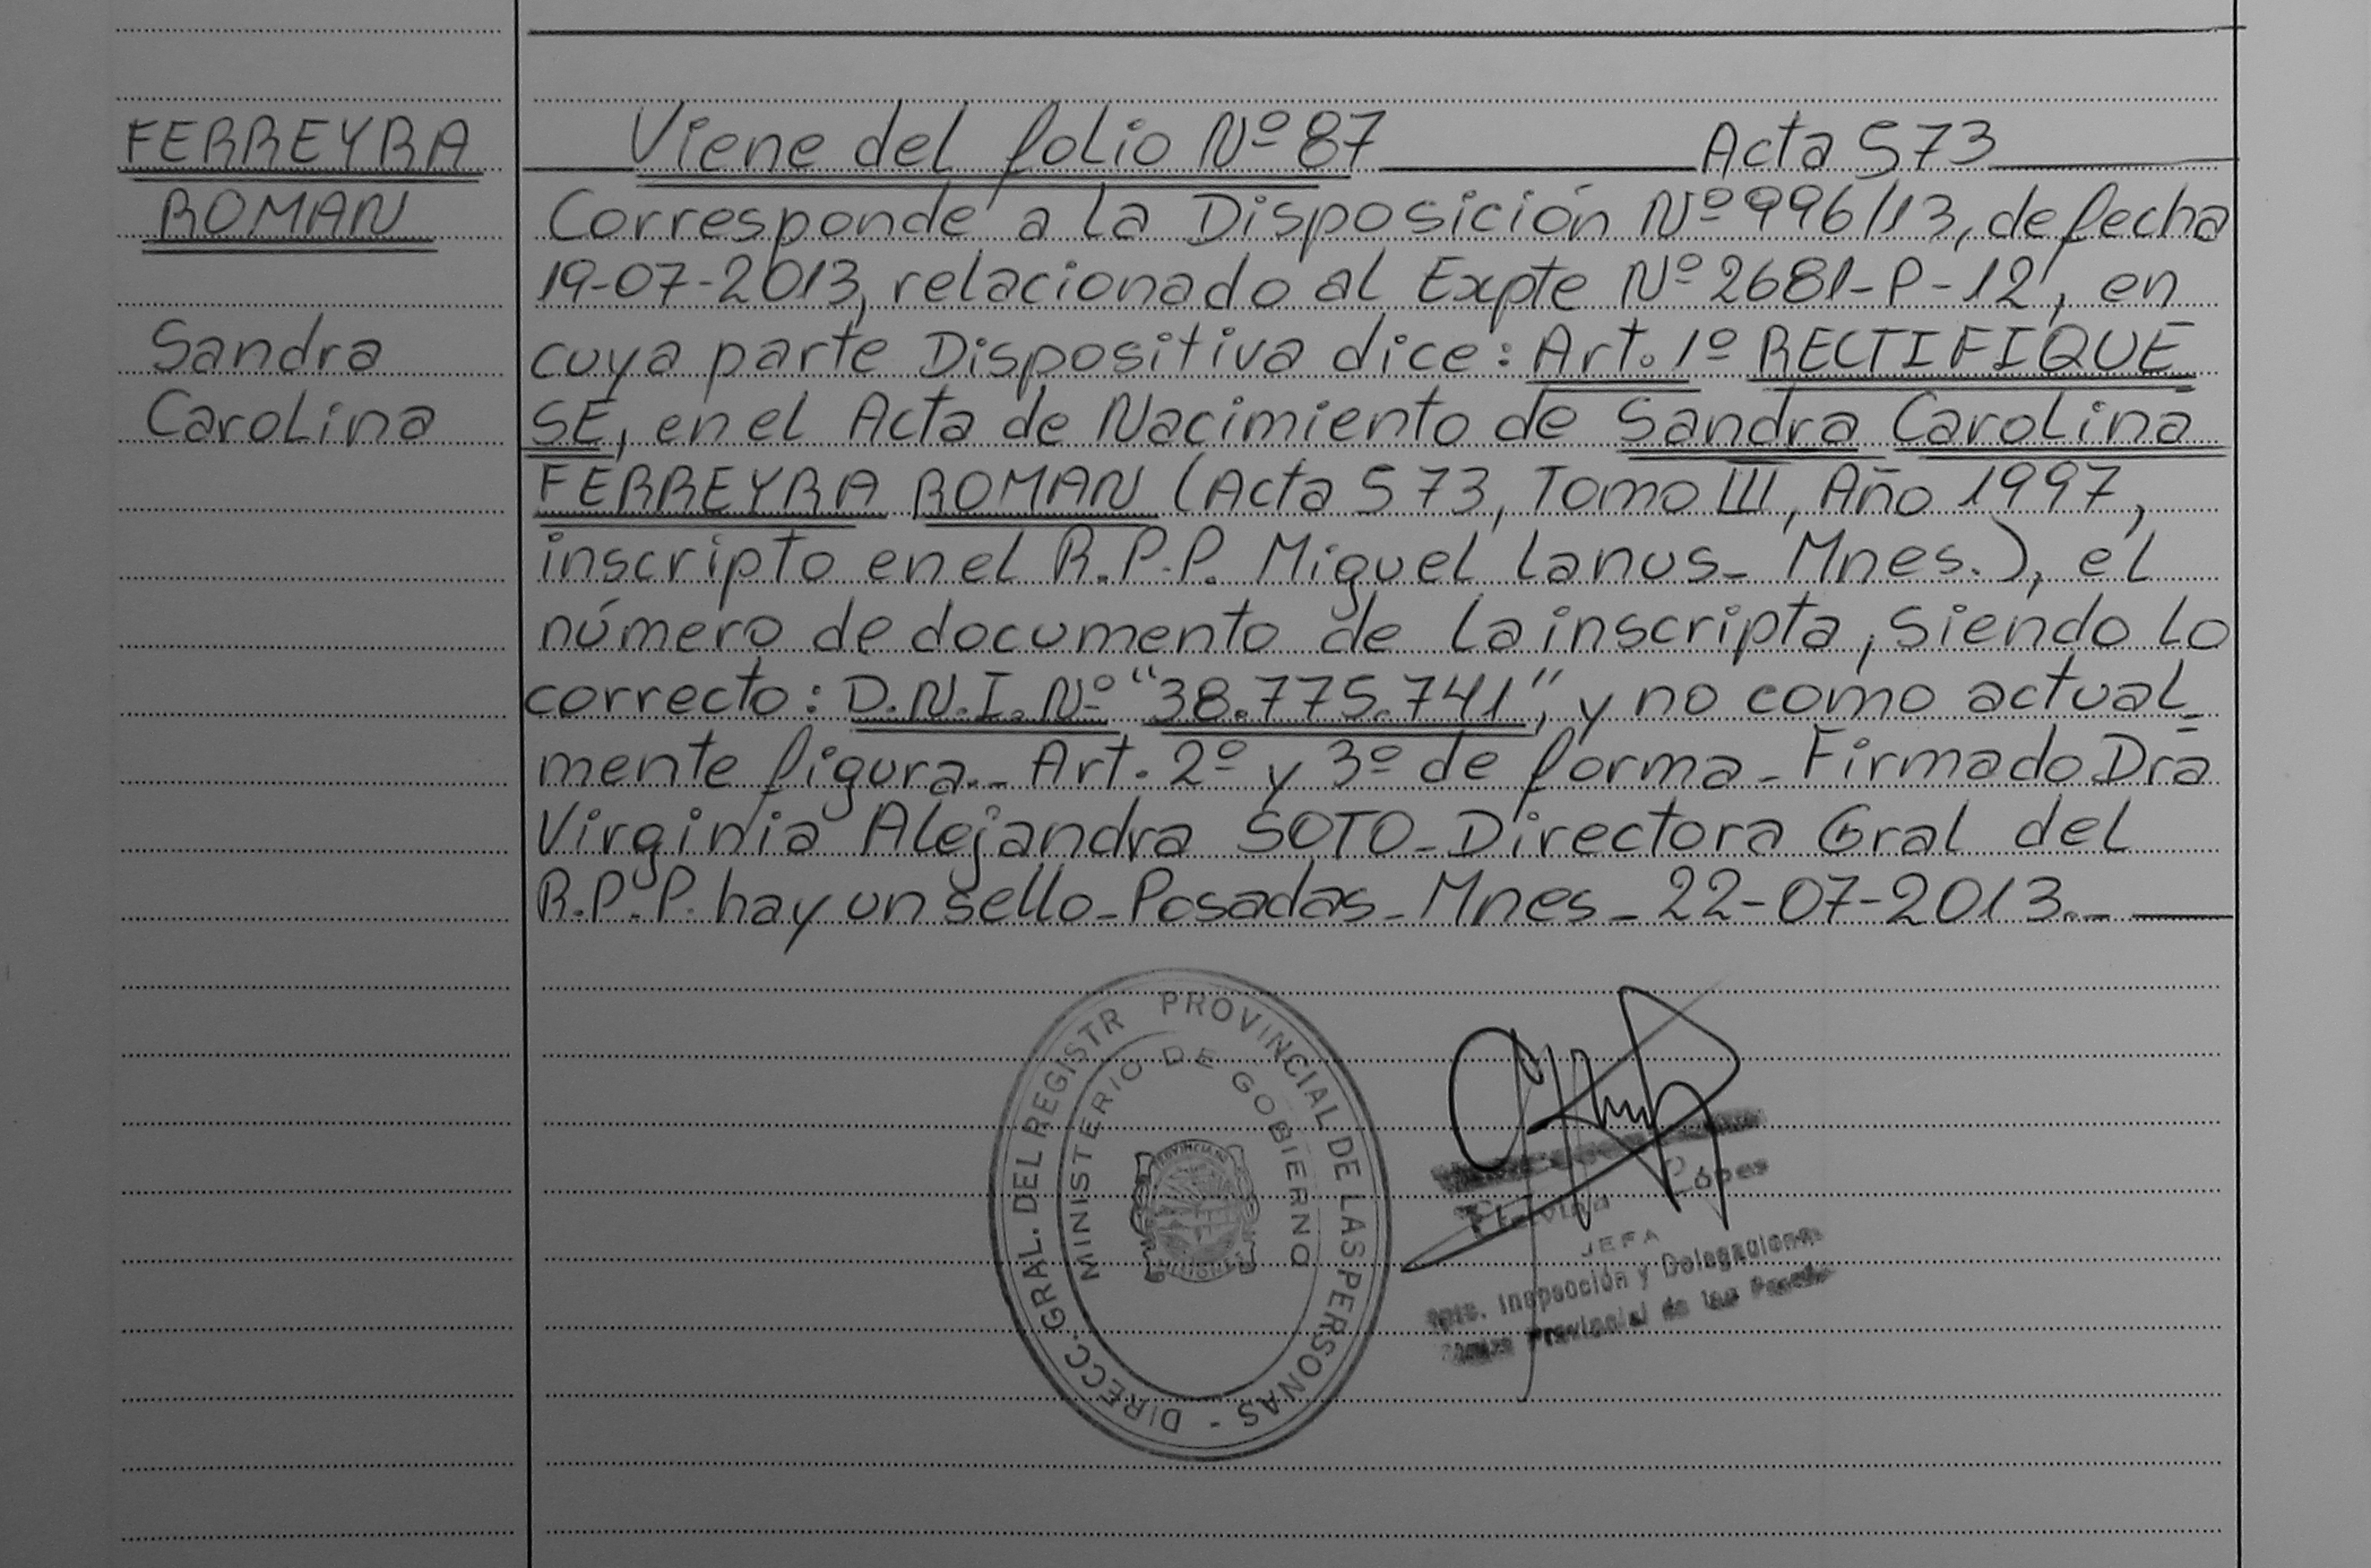 FERREYRA
ROMAN
Sandra
Carolina
Viene del folio Nº 87 Acta 573
Corresponde a la Disposición Nº 996/13, de fecha
19-07-2013, relacionado al Expte Nº 2681-P-12, en
cuya parte Dispositiva dice: Art. 1º RECTIFIQUE
SE, en el Acta de Nacimiento de Sandra Carolina
FERREYRA ROMAN (Acta 573, Tomo III, Año 1997,
inscripto en el R.P.P. Miguel Lanus - Mnes.), el
número de documento de la inscripta, siendo lo
correcto: D.N.I. Nº "38.775.741", y no como actual
mente figura.- Art. 2º y 3º de forma - Firmado Dra
Virginia Alejandra SOTO - Directora Gral del
R.P.P. hay un sello - Posadas - Mnes - 22-07-2013.-
DIRECC. GRAL. DEL REGISTR PROVINCIAL DE LAS PERSONAS -
MINISTERIO DE GOBIERNO
López
JEFA
Dpto. Inspección y Delegaciones
Provincial de las